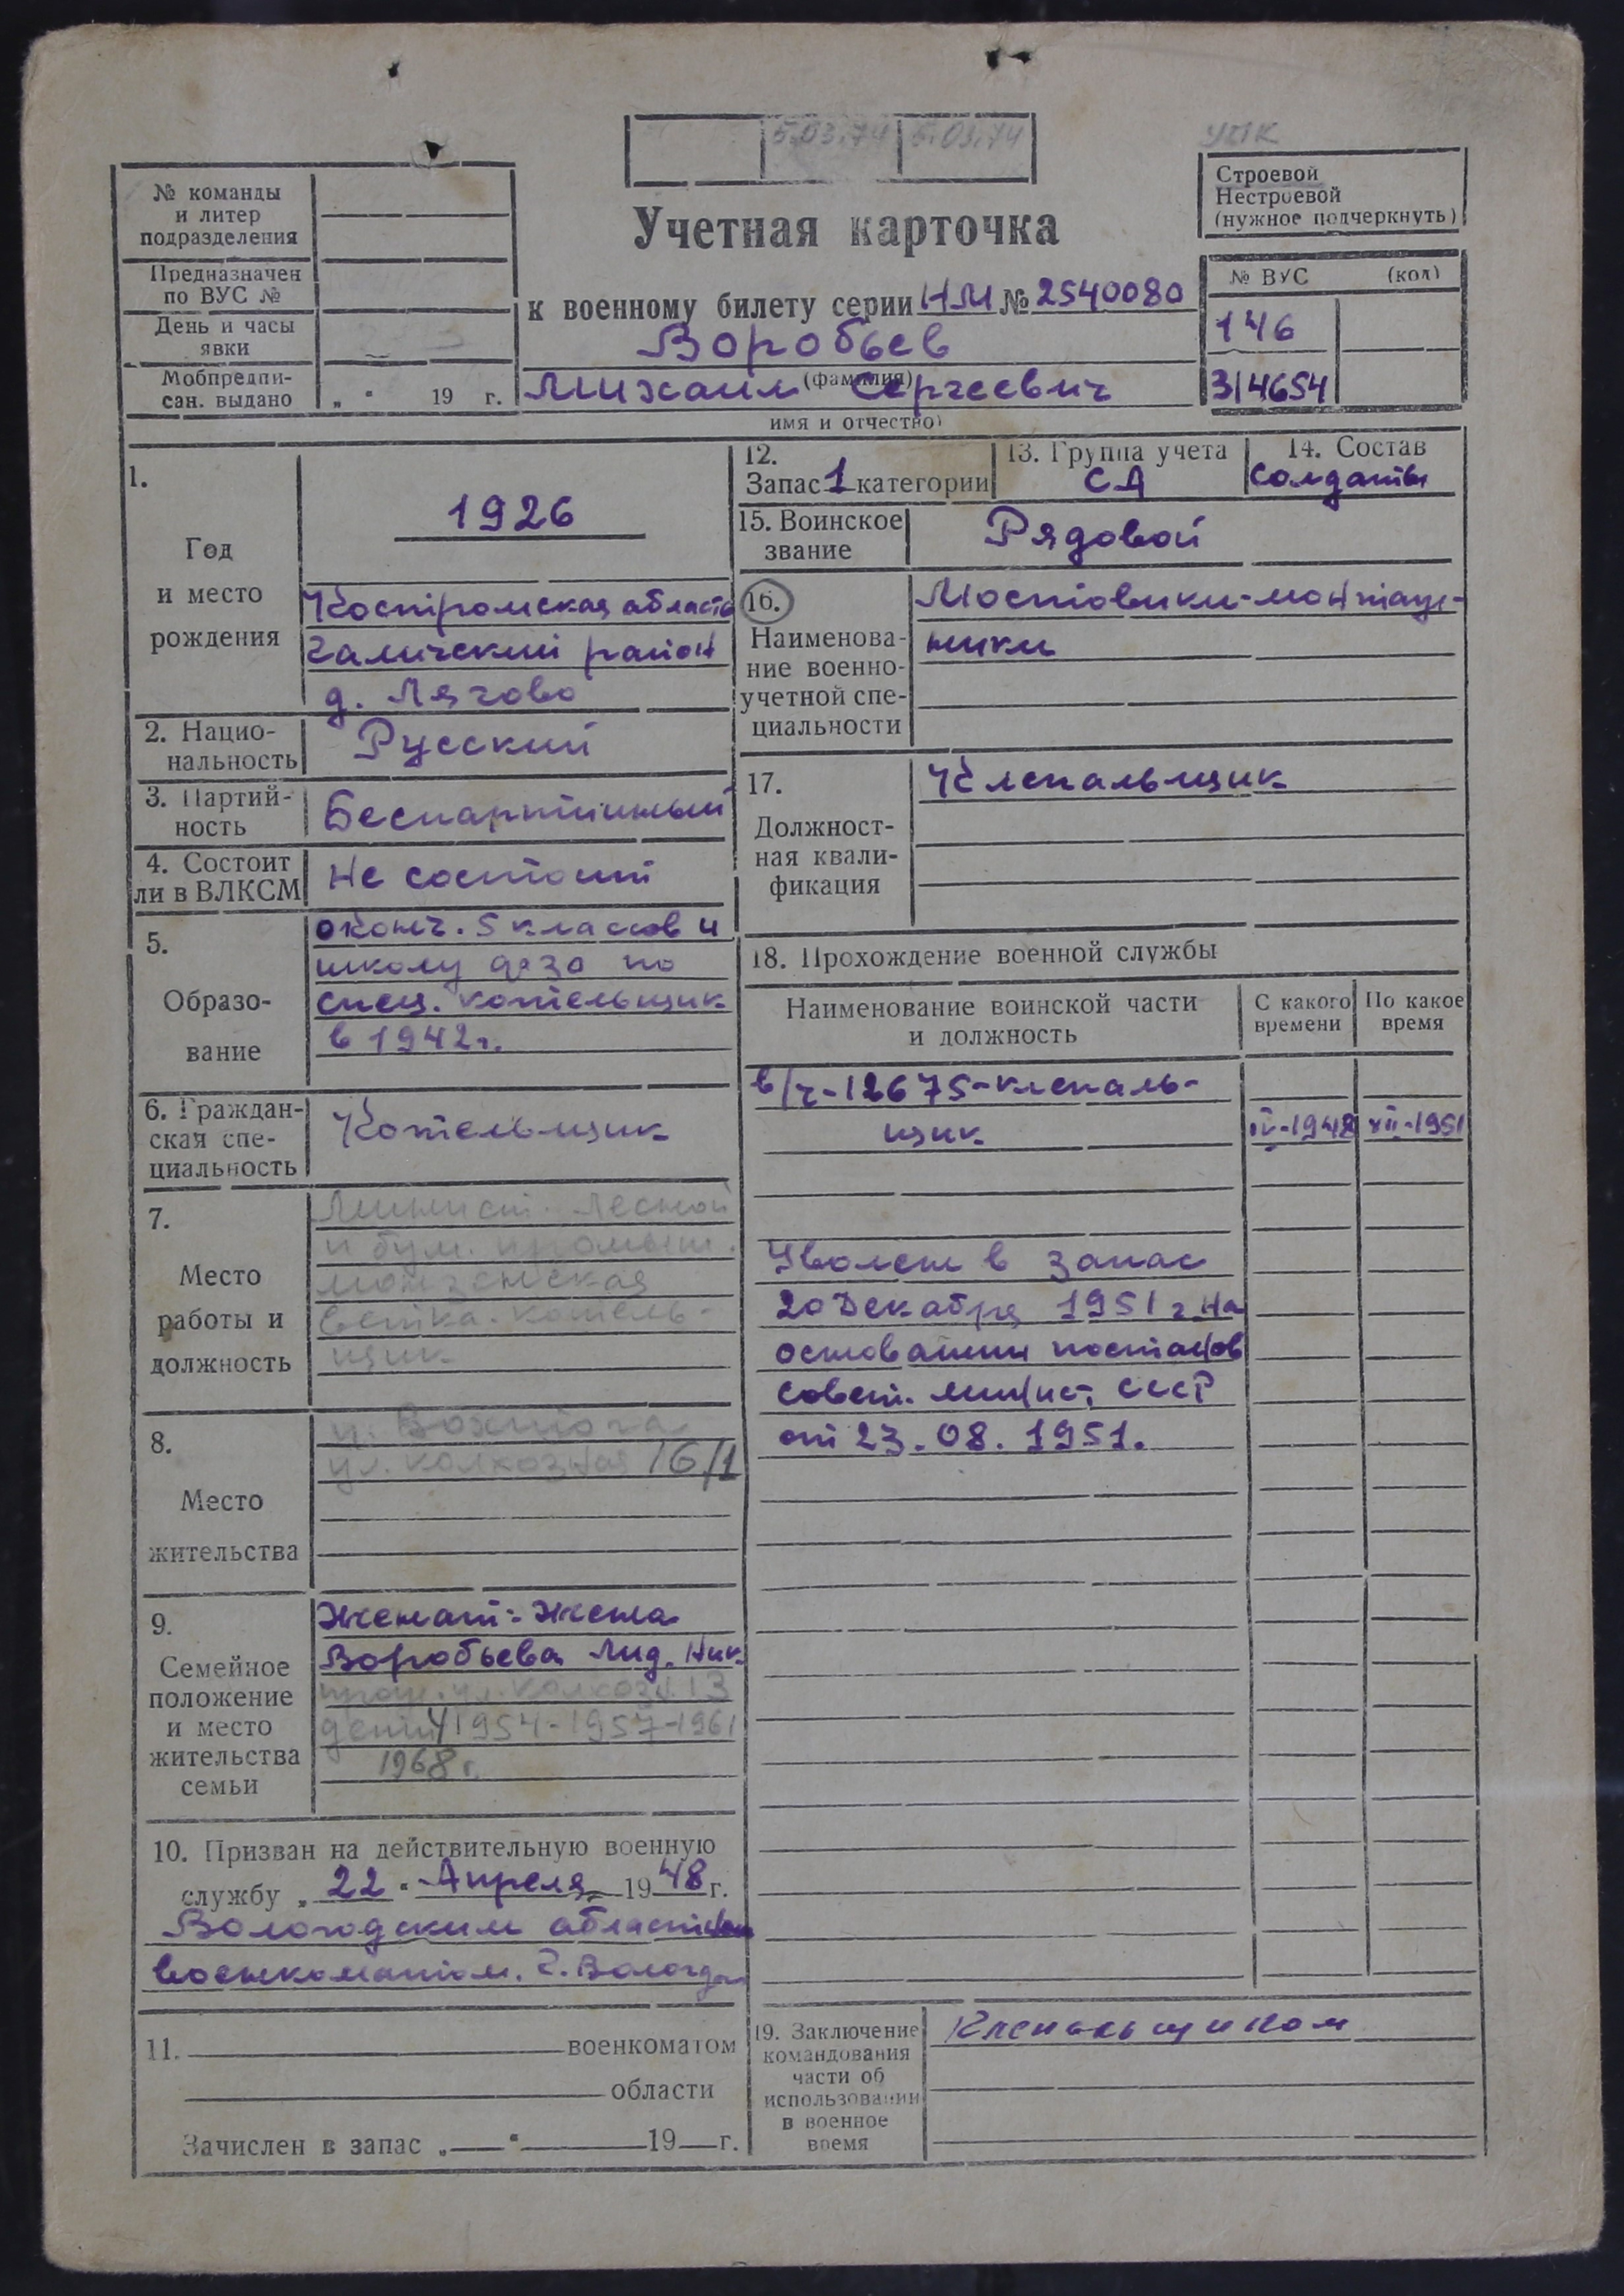 5.03.74 5.03.74
УПК
№ команды
и литер
подразделения
Предназначен
по ВУС №
День и часы
явки
Мобпредпи-
сан. выдано „ " 19 г.
Строевой
Нестроевой
(нужное подчеркнуть)
Учетная карточка
к военному билету серии НМ № 2540080
Воробьев
(фамилия)
Михаил Сергеевич
имя и отчество)
№ ВУС (код)
146
3/4654
1.
Год
и место
рождения
1926
Костромская область
Галичский район
д. Лягово
2. Нацио-
нальность
Русский
3. Партий-
ность
Беспартийный
4. Состоит
ли в ВЛКСМ
Не состоит
5.
Образо-
вание
оконч. 5 классов и
школу фзо по
спец. котельщик
в 1942г.
6. Граждан-
ская спе-
циальность
Котельщик
7.
Место
работы и
должность
Минист. Лесной
и бум. промышл.
монзенская
ветка. котель-
щик
8.
Место
жительства
п. Вохтога
ул. колхозная 16/1
9.
Семейное
положение
и место
жительства
семьи
Женат: Жена
Воробьева Лид. Ник.
прож. ул. колхозн. 13
дети 4 1954-1957-1961
1968г.
10. Призван на действительную военную
службу „ 22 " Апреля 1948 г.
Вологодским областным
военкоматом. г. Вологда
11. военкоматом
области
Зачислен в запас „ " 19 г.
12.
Запас 1 категории
13. Группа учета
СА
14. Состав
Солдаты
15. Воинское
звание
Рядовой
16.
Наименова-
ние военно-
учетной спе-
циальности
Мостовики-монтаж-
ники
17.
Должност-
ная квали-
фикация
Клепальщик
18. Прохождение военной службы
Наименование воинской части
и должность
С какого
времени
По какое
время
в/ч-12675-клепаль-
щик IV-1948 XII-1951
Уволен в запас
20 Декабря 1951 г. На
основании постанов
совет. минист. СССР
от 23.08.1951.
19. Заключение
командования
части об
использовании
в военное
время
Клепальщиком